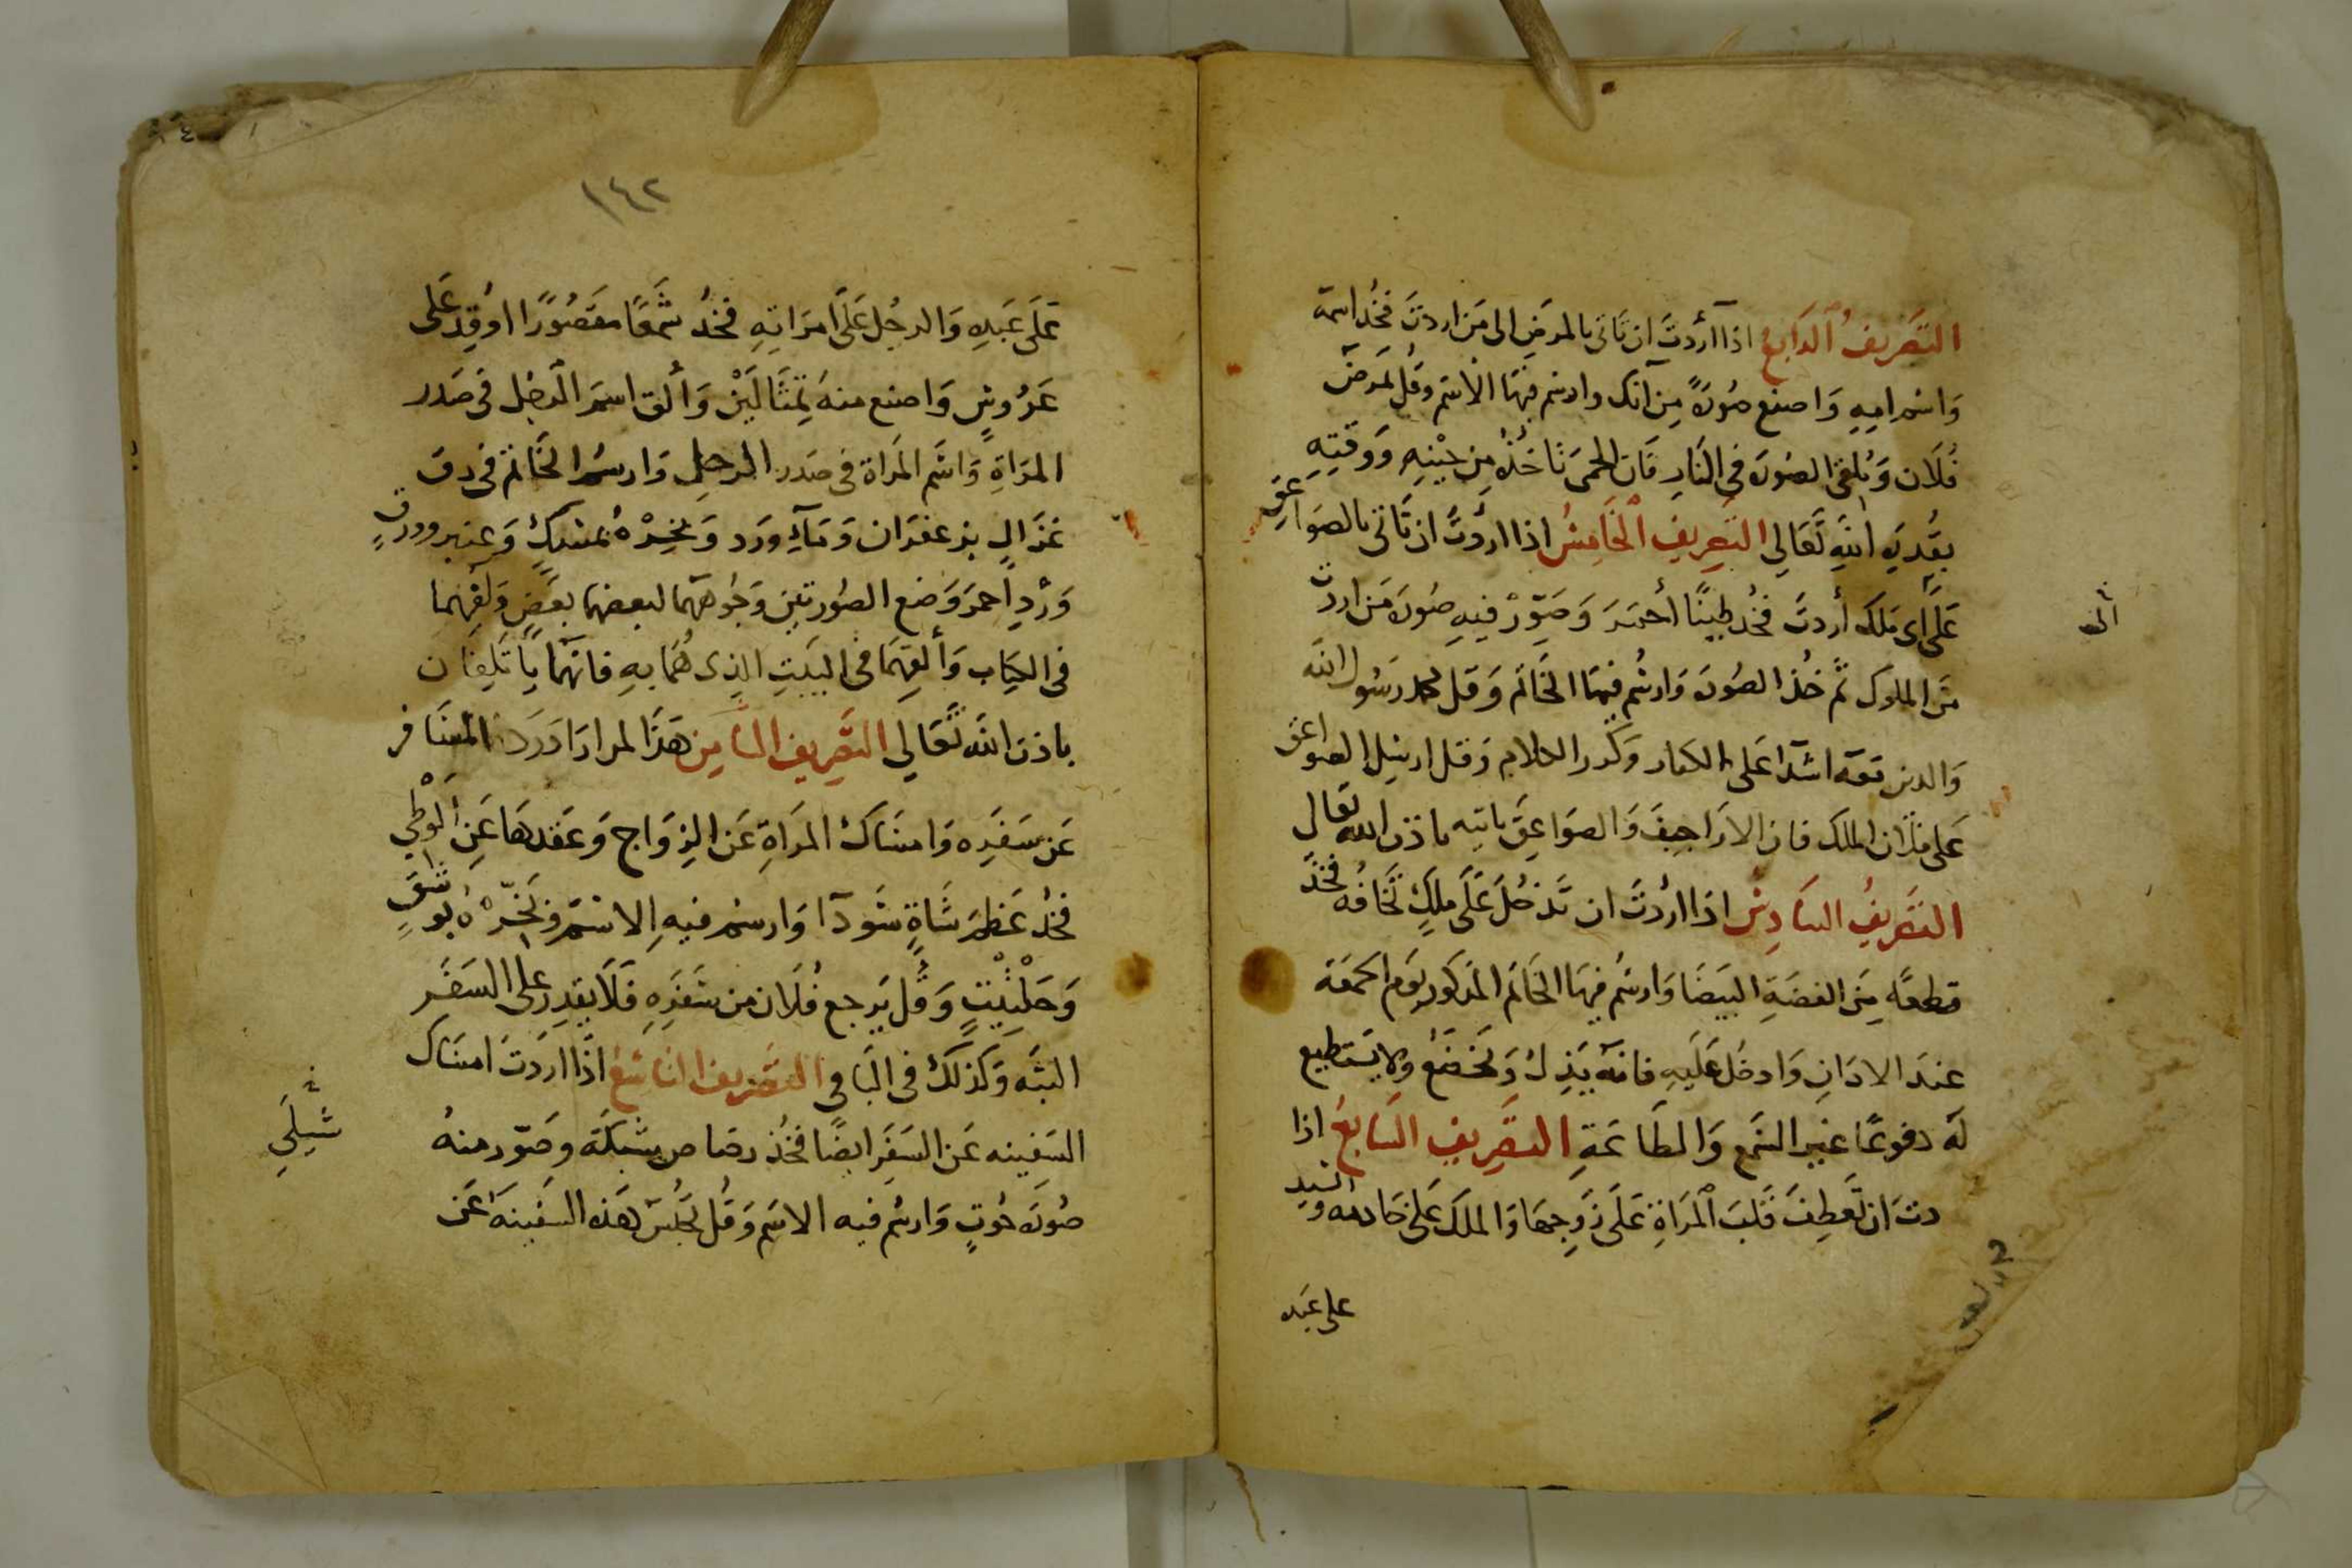 التصريف الرابع اذا أردت ان تاتي بالمرض الى من اردت فخذ اسمه
واسم امه واصنع صورة من آنك وارسم فيها الاسم وقل يمرض
فلان وتلقى الصورة في النار فان الحمى تاخذه من حينه ووقته
بقدرة الله تعالي التصريف الخامس اذا اردت ان تاتي بالصواعق
على أي ملك أردت فخذ طينا أحمر وصور فيه صورة من اردت
من الملوك ثم خذ الصورة وارسم فيها الخاتم وقل محمد رسول الله
والدين معه اشدا على الكفار وكرر الكلام وقل ارسل الصواعق
على فلان الملك فان الاراجيف والصواعق تاتيه باذن الله تعالى
التصريف السادس اذا اردت ان تدخل على ملك تخافه فخذ
قطعة من الفضة البيضا وارسم فيها الخاتم المذكور يوم الجمعة
عند الاذان وادخل عليه فانه يذل ويخضع ولا يستطيع
له دفوعا غير السمع والطاعة التصريف السابع اذا
دت ان تعطف قلب المراة على زوجها والملك على خادمه والسيد
على عبده
الى
١٤٢
على عبده والرجل على امراته فخذ شمعا مقصورا اوقد على
عروس واصنع منه تمثالين وألق اسم الرجل في صدر
المراة واسم المراة في صدر الرجل وارسم الخاتم في رق
غزال بزعفران وماء ورد وبخره بمسك وعنبر وورق
ورد احمر وضع الصورتين وجوههما لبعضهما بعض ولفهما
في الكتاب وألقهما في البيت الذي هما به فانهما ياتلفان
باذن الله تعالي التصريف الثامن هذا لمراد رد المسافر
عن سفره وامساك المراة عن الزواج وعقدها عن الوطي
فخذ عظم شاة سودا وارسم فيه الاسم وبخره بوشق
وحلتيت وقل يرجع فلان من سفره فلا يقدر على السفر
البته وكذلك في الباقي التصريف التاسع اذا اردت امساك
السفينه عن السفر ايضا فخذ رصاص شبكة وصور منه
صورة حوت وارسم فيه الاسم وقل تحبس هذه السفينة عن